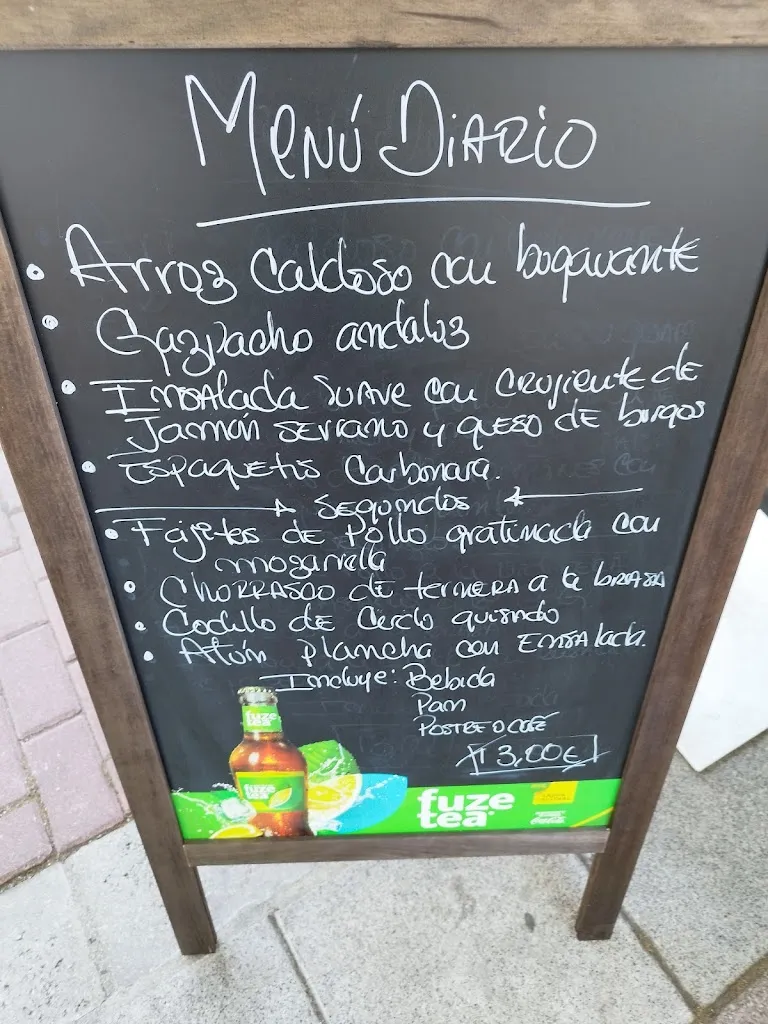 Menú Diario
• Arroz Caldoso con bogavante
• Gazpacho andaluz
• Ensalada suave con crujiente de
Jamón serrano y queso de burgos
• Espaguetis Carbonara.
Segundos
• Fajetas de Pollo gratinada con
mozarrella
• Chorrasco de ternera a la brasa
• Codillo de Cerdo guisado
• Atún plancha con Ensalada.
Incluye: Bebida
Pan
Postre o café
13,00€
fuze
tea
fuze
tea
fuze
tea